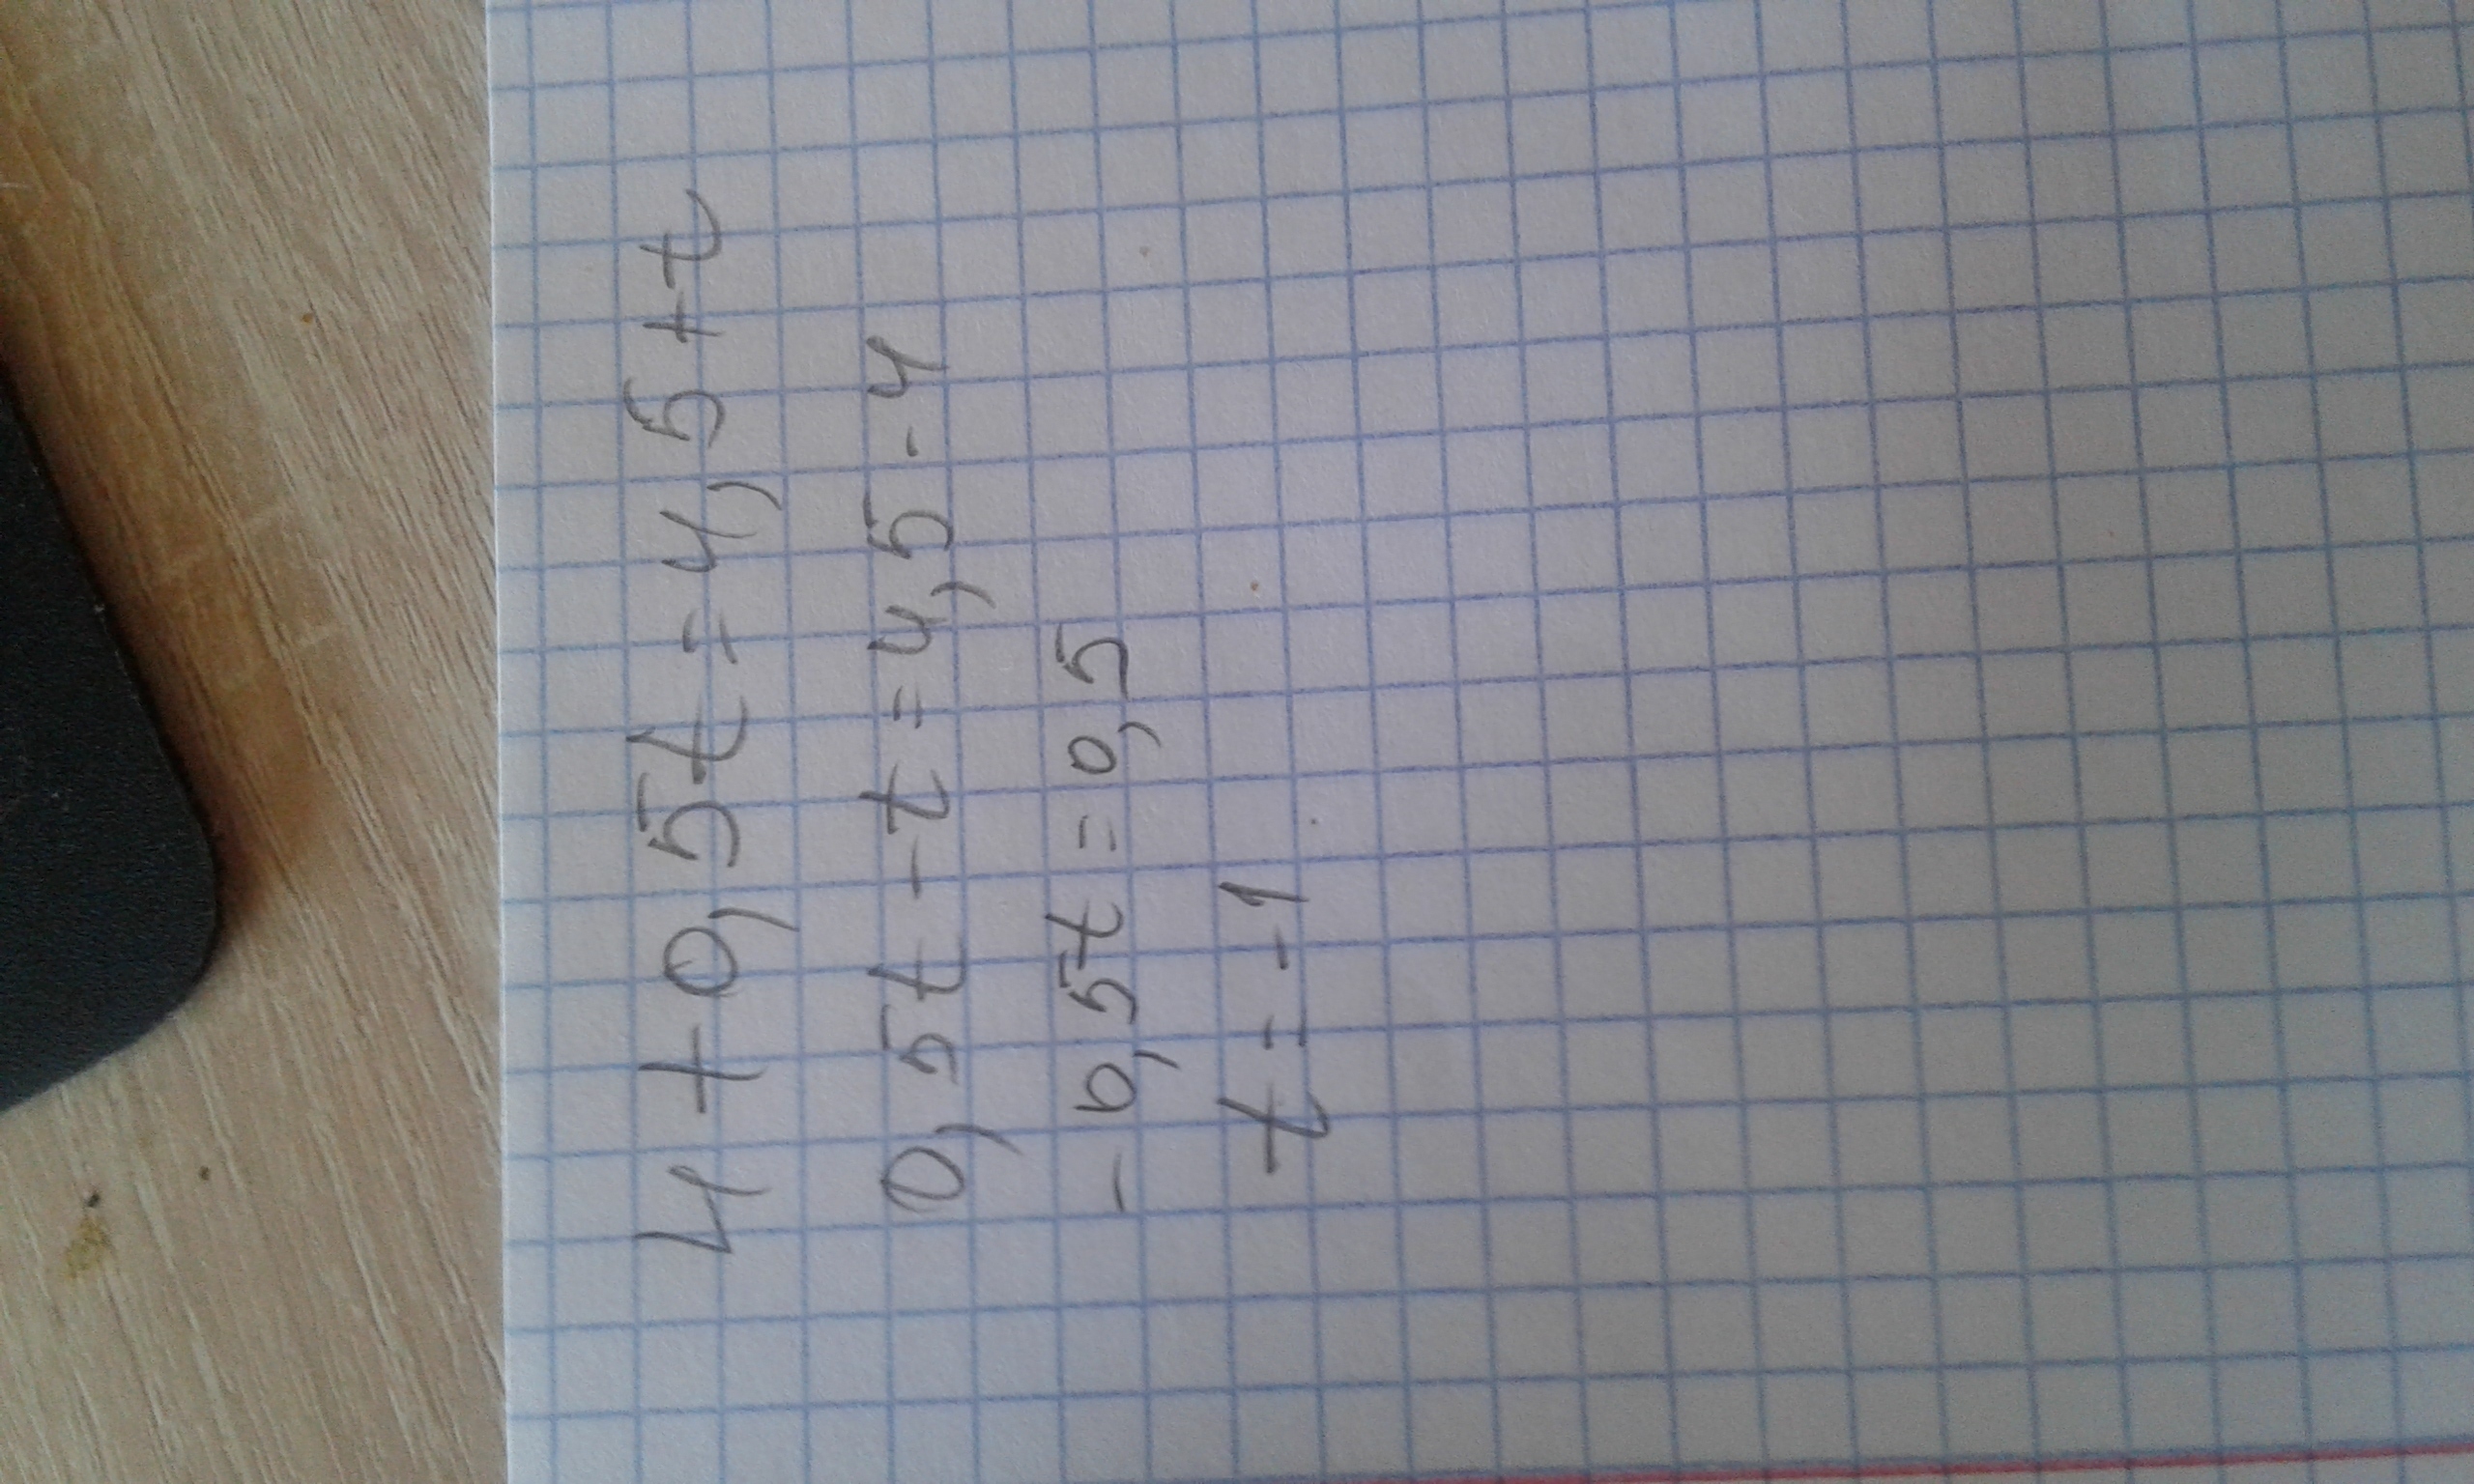 4 + 0,5t = 4,5 + t
0,5t - t = 4,5 - 4
- 0,5t = 0,5
t = - 1